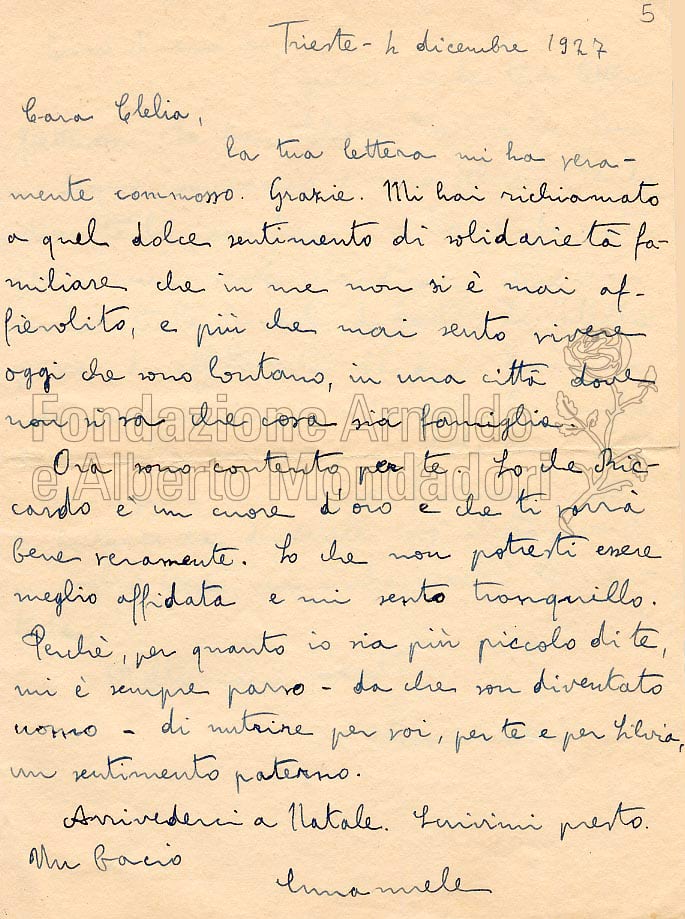 5
Trieste - 4 dicembre 1927
Cara Clelia,
la tua lettera mi ha vera-
mente commosso. Grazie. Mi hai richiamato
a quel dolce sentimento di solidarietà fa-
miliare che in me non si è mai af-
fievolito, e più che mai sento vivere
oggi che sono lontano, in una città dove
non si sa che cosa sia famiglia.
Fondazione Arnoldo
e Alberto Mondadori
Ora sono contento per te. So che Ric-
cardo è un cuore d'oro e che ti vorrà
bene veramente. So che non potresti essere
meglio affidata e mi sento tranquillo.
Perchè, per quanto io sia più piccolo di te,
mi è sempre parso - da che son diventato
uomo - di nutrire per voi, per te e per Silvia,
un sentimento paterno.
Arrivederci a Natale. Scrivimi presto.
Un bacio
Emanuele